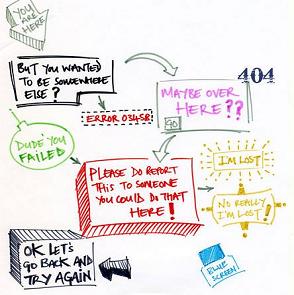 YOU
ARE
HERE
BUT YOU WANTED
TO BE SOMEWHERE
ELSE?
404
MAYBE OVER
HERE??
GO
ERROR 03458
DUDE YOU
FAILED
PLEASE DO REPORT
THIS TO SOMEONE
YOU COULD DO THAT
HERE!
I'M LOST
NO REALLY
I'M LOST!
OK LET'S
GO BACK AND
TRY AGAIN
BLUE
SCREEN